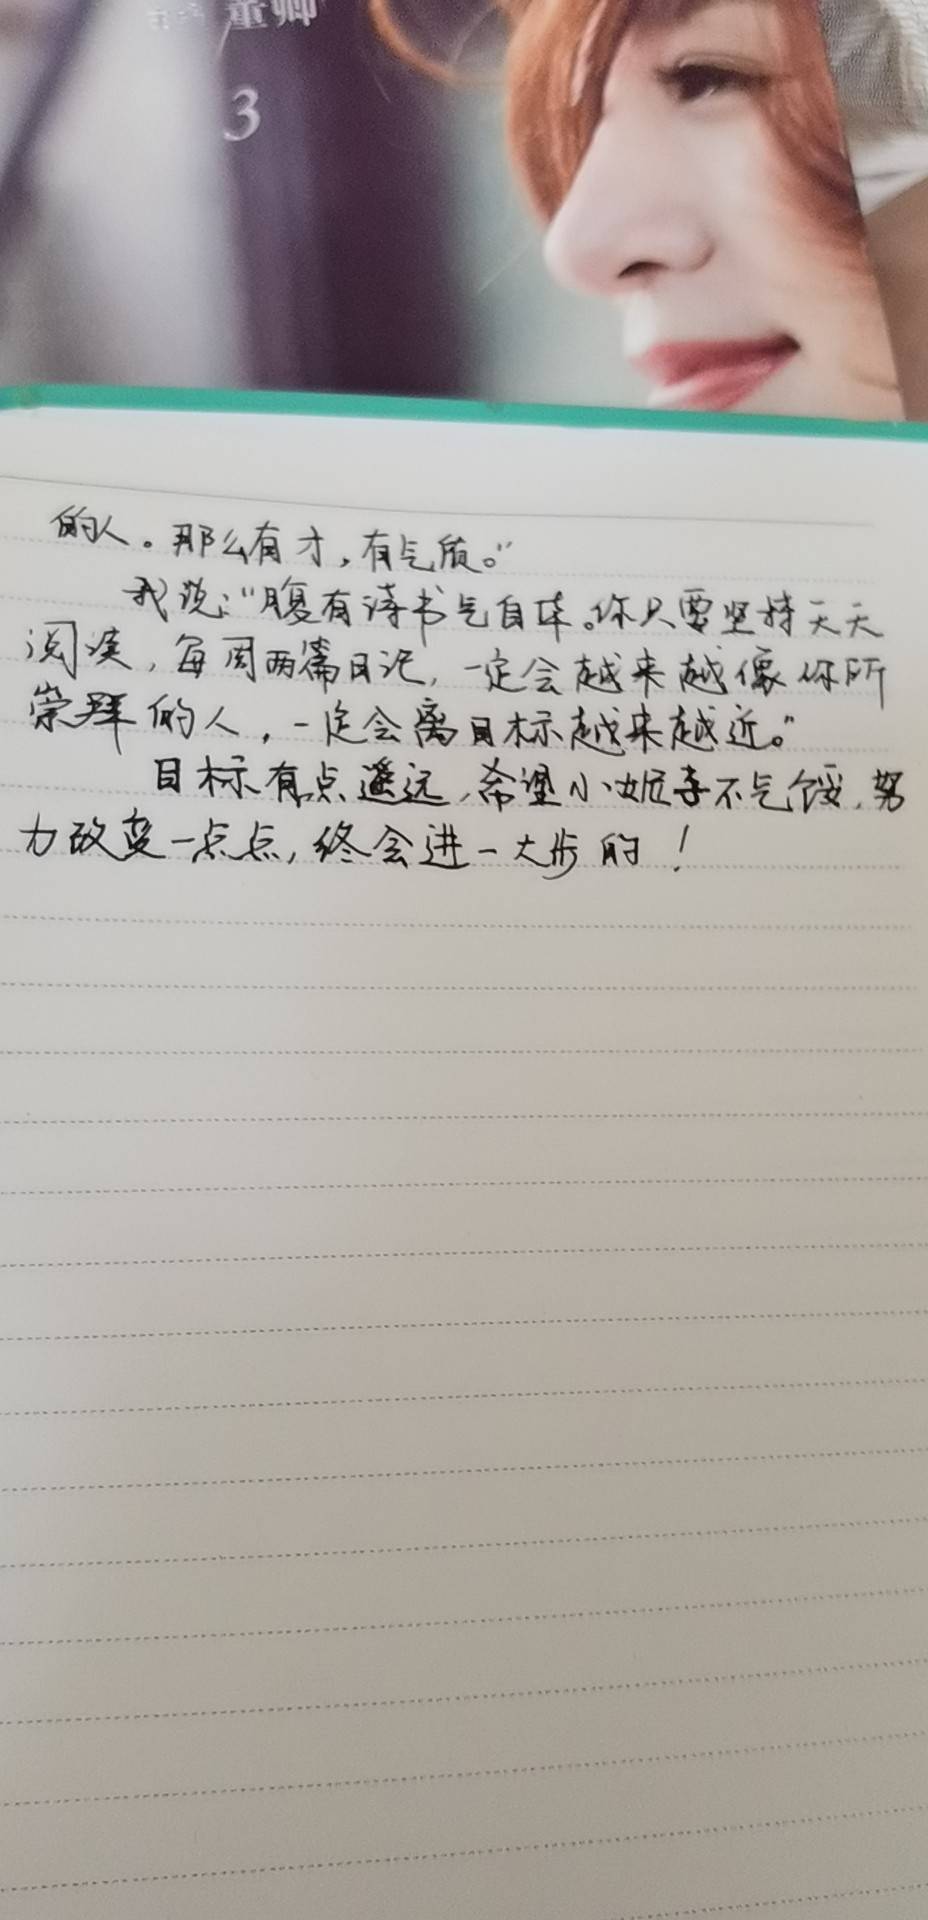 董卿
3
的人。那么有才，有气质。"
我说："腹有诗书气自华。你只要坚持天天
阅读，每周两篇日记，一定会越来越像你所
崇拜的人，一定会离目标越来越近。"
目标有点遥远，希望小妮子不气馁，努
力改变一点点，终会进一大步的！